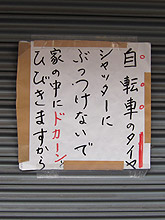 自転車のタイヤ
シャッターに
ぶっつけないで
家の中にドカーンと
ひびきますから